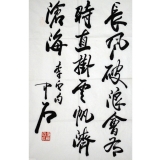 長风破浪會有
時直掛雲帆濟
滄海 李白句
中石